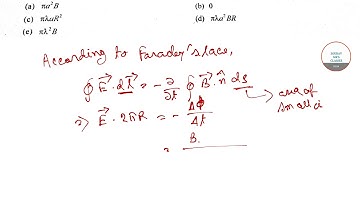 (a) πa²B
(b) 0
(c) πλaR²
(d) πλa²BR
(e) πλ²B
According to Faraday's law,
∮ E⃗ · dl⃗ = - ∂/∂t ∮ B⃗ · n̂ ds
→ area of small ci
⇒ E⃗ · 2πR = - Δϕ/Δt
= B.